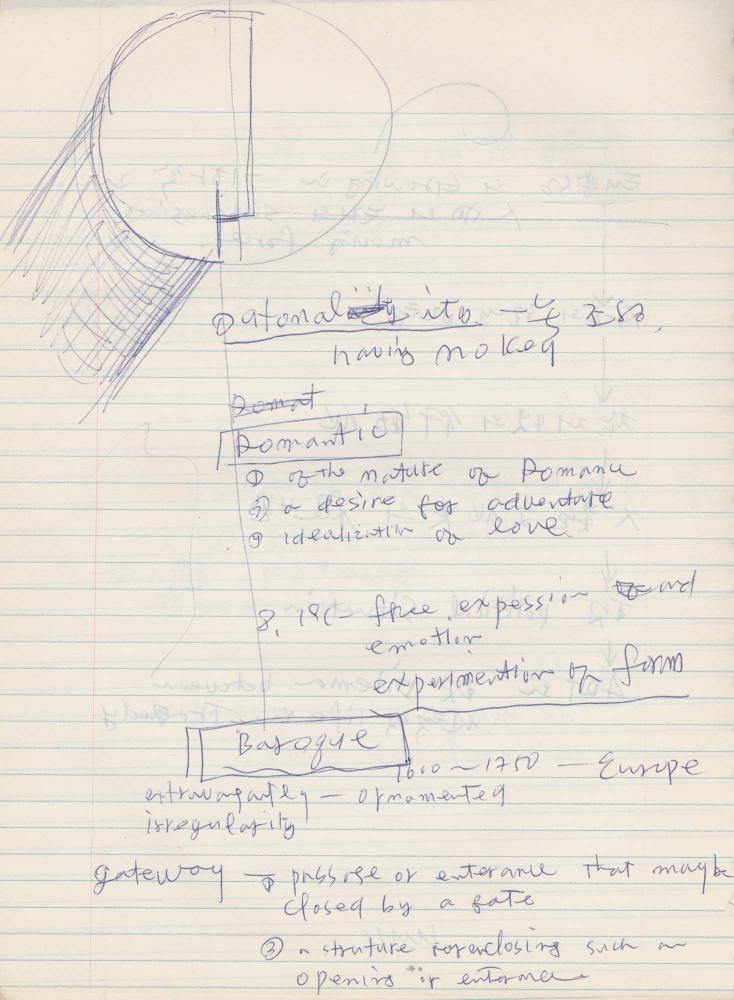 ① atonality
having no key
Romat
Romantic
① of the nature of Romance
② a desire for adventure
③ idealization of love
8, 19C- free expession and
emotion
experimention of form
Baroque
1600~1750 — Europe
extravagantly — ornamented
irregularity
gateway — ① passage or enterance that maybe
closed by a gate
② a struture for enclosing such an
opening or enterance